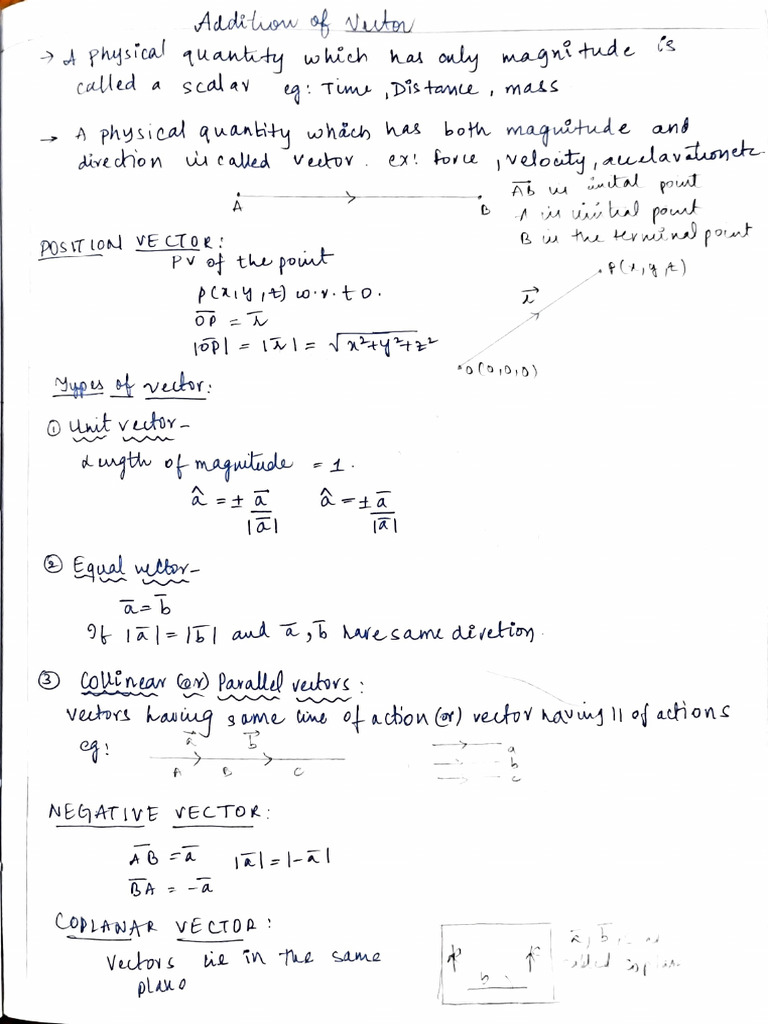 Addition of Vector
→ A physical quantity which has only magnitude is
called a scalar eg: Time, Distance, mass
→ A physical quantity which has both magnitude and
direction is called vector. ex: force, velocity, acclavation etc.
A B
AB is inital point
A is initial point
B is the terminal point
POSITION VECTOR:
PV of the point
P(x,y,z) w.r.t O.
OP = r
|OP| = |r| = √x²+y²+z²
P(x,y,z)
r
O(0,0,0)
Types of vector:
① Unit vector-
Length of magnitude = 1.
â = ± a/|a| â = ± a/|a|
② Equal vector-
a = b
If |a| = |b| and a, b have same diretion.
③ Collinear (or) Parallel vectors:
vectors having same line of action (or) vector having || of actions
eg: a b
A B C
a
b
c
NEGATIVE VECTOR:
AB = a |a| = |-a|
BA = -a
COPLANAR VECTOR:
Vectors lie in the same
plano
b
a, b,